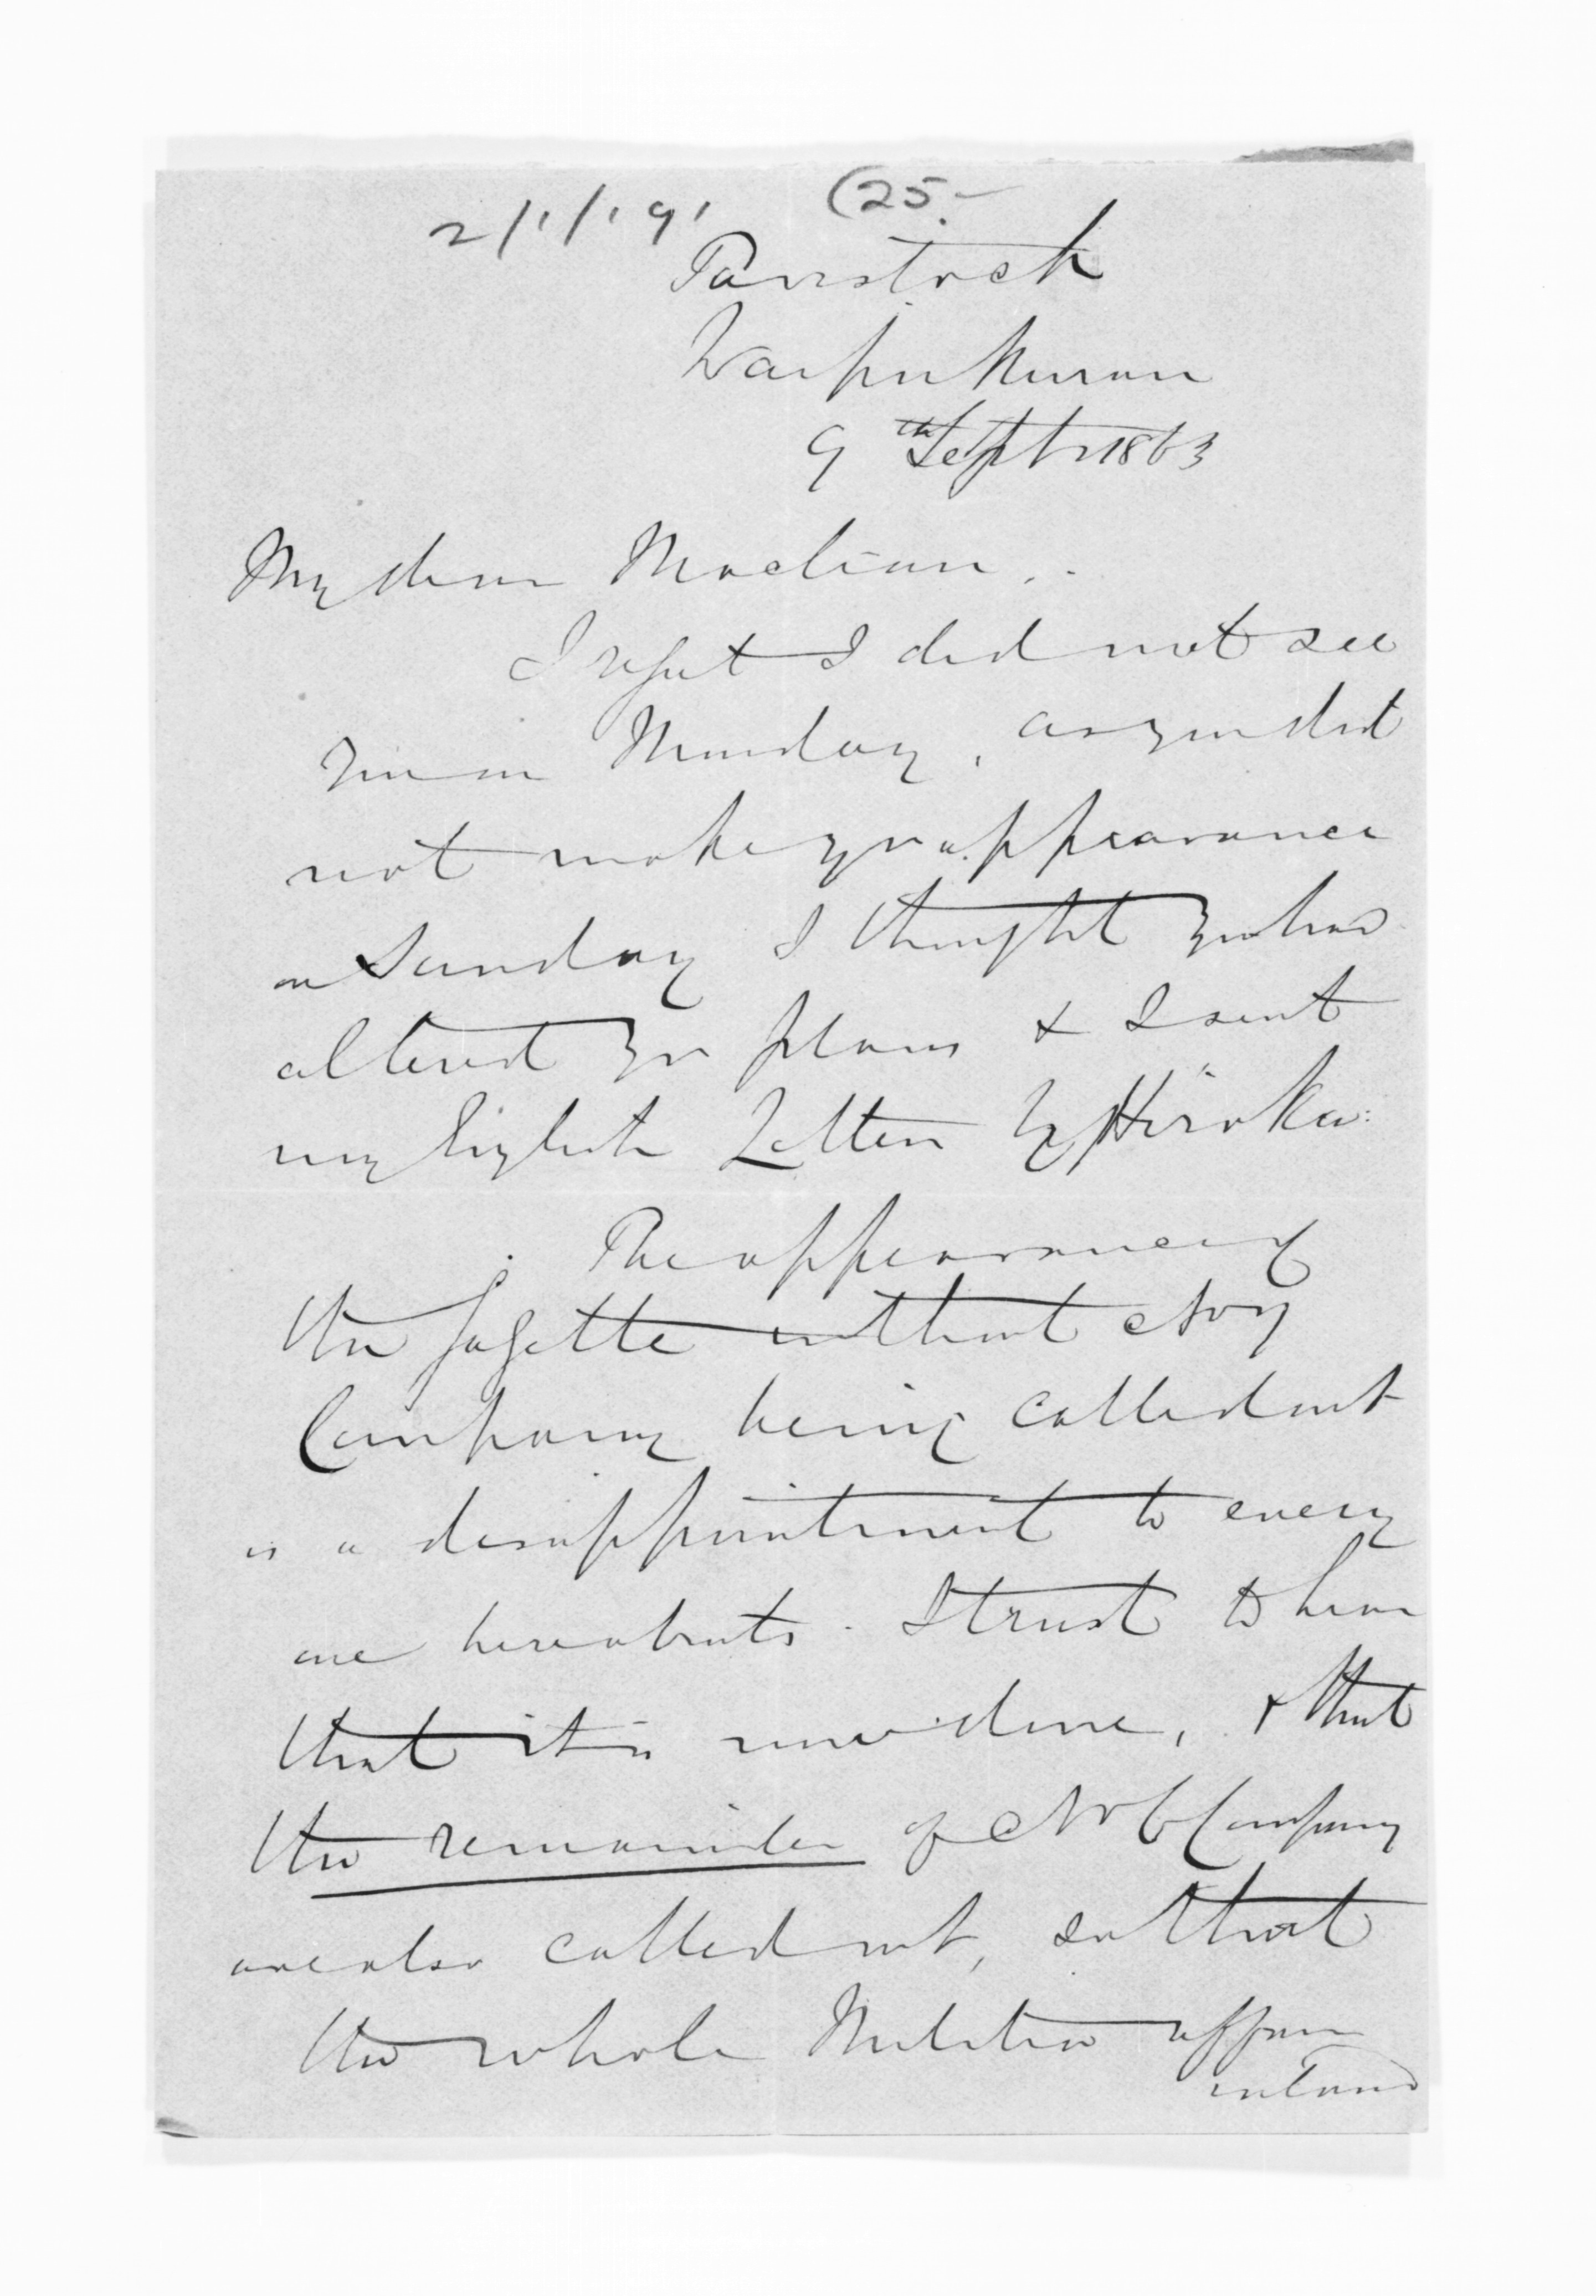 2/1/191 (25.-
Tavistock
Waipukurau
9th Septr 1863
My dear Maclean.
I regret I did not see
you on Monday, as you did
not make yr appearance
on Sunday I thought you had
altered yr plans & I sent
my English Letters by
The appearance of
the Gazette without No 4
Company being called out
is a disappointment to every
one hereabouts. I trust to hear
that it is now done, & that
the remainder of No 6 Company
are also called out, so that
the whole Militia affair
inland